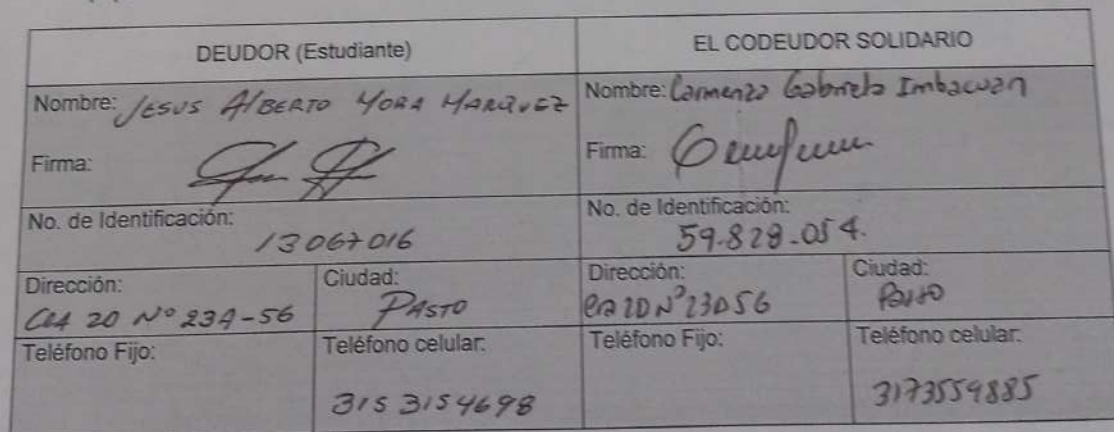 DEUDOR (Estudiante)
EL CODEUDOR SOLIDARIO
Nombre: JESUS AlBERTO MORA MARQUEZ
Nombre: Carmenza Gabriela Imbacuan
Firma:
Firma:
No. de Identificación:
13067016
No. de Identificación:
59.829.054.
Dirección:
CRA 20 Nº 23A-56
Ciudad:
PASTO
Dirección:
Cra 20 Nº 23A56
Ciudad:
Pasto
Teléfono Fijo:
Teléfono celular:
315 3154698
Teléfono Fijo:
Teléfono celular:
3173559885